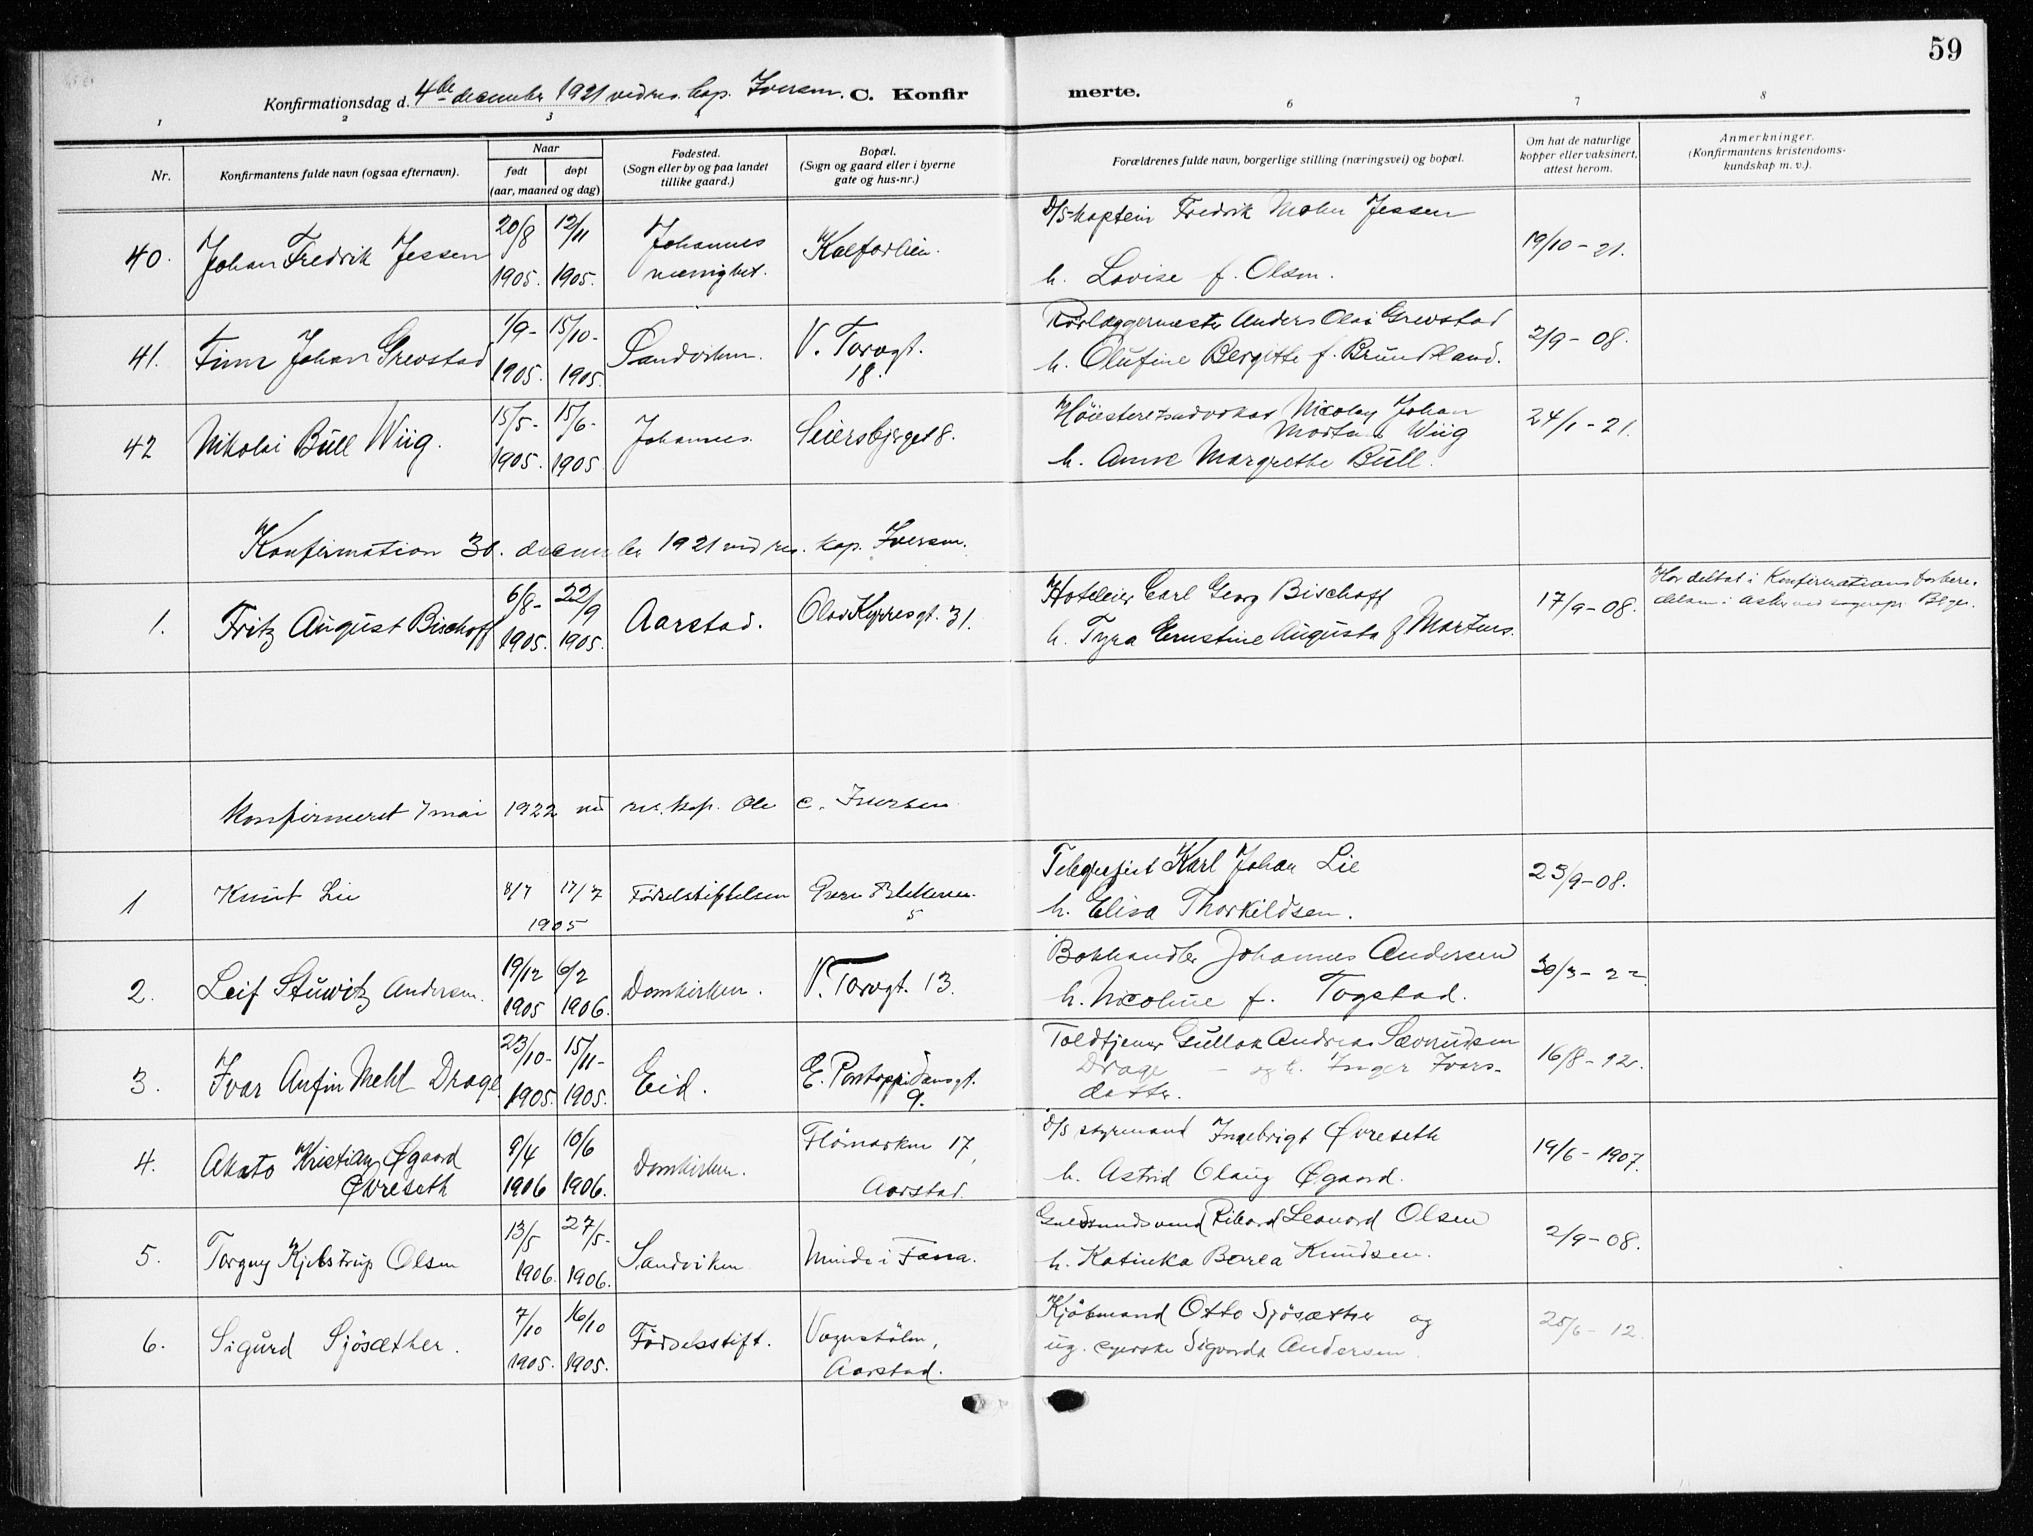 59
Konfirmationsdag d. 4de december 1921 ved res. kap. Iversen. C. Konfirmerte.
1 2 3 4 6 7 8
Nr.
Konfirmantens fulde navn (ogsaa efternavn).
Naar
født
døpt
(aar, maaned og dag)
Fødested.
(Sogn eller by og paa landet
tillike gaard.)
Bopæl.
(Sogn og gaard eller i byerne
gate og hus-nr.)
Forældrenes fulde navn, borgerlige stilling (næringsvei) og bopæl.
Om hat de naturlige
kopper eller vaksinert,
attest herom.
Anmerkninger.
(Konfirmantens kristendoms-
kundskap m. v.).
40. Johan Fredrik Jessen 20/8 1905. 12/11 1905. Johannes menighet. Kalfarlien.
D/S-kaptein Fredrik Mohn Jessen
h. Lovise f. Olsen. 19/10-21.
41. Finn Johan Grevstad 1/9- 1905. 15/10- 1905. Sandviken. V. Torvgt. 18.
Rørlæggermester Anders Olai Grevstad
h. Olufine Bergitte f. Brundtland. 2/9-08.
42 Nikolai Bull Wiig. 15/5- 1905. 15/6- 1905. Johannes. Seiersbjerget 8.
Høiesteretsadvokat Nicolay Johan
Martens Wiig
h. Anne Margrethe Bull. 24/1-21.
Konfirmation 30. december 1921 ved res. kap. Iversen.
1. Fritz August Bischoff 6/8- 1905. 22/9 1905. Aarstad. Olav Kyrresgt. 31.
Hoteleier Carl Georg Bischoff
h. Tyra Ernstine Augusta f Martens. 17/9-08.
Har deltat i Konfirmationsforbere-
delsen i Asker ved sognepr.
Konfirmeret 7 mai 1922 ved res. kap. Ole C. Iversen
1 Knut Lie 8/7 17/7 1905 Fødselsstiftelsen 5
Telegrafist Karl Johan Lie
h. Elisa Thorkildsen. 23/9-08.
2. Leif Stuwitz Andersen. 19/12 1905 6/2 1906. Domkirken. V. Torvgt. 13.
Bokhandler Johannes Andersen
h. Nicoline f. Togstad. 30/3-22
3. Ivar Anfin Mehl Drage 23/10- 1905. 15/11- 1905. Eid. E. Pontoppidansgt. 9.
Toldtjener Gullak Andreas Sævundsen
Drage - og h. Inger Ivars-
datter. 16/8-12.
4. Akato Kristian Øgaard
Øvreseth 9/4 1906 10/6 1906. Domkirken. Flömarken 17,
Aarstad.
D/S styrmand Ingebrigt Øvreseth
h. Astrid Olaug Øgaard. 19/6-1907.
5. Torgny Kjelstrup Olsen 13/5 1906. 27/5- 1906. Sandviken Minde i Fana.
Guldsmedsvend Rikard Leonard Olsen
h. Katinka Berea Knudsen. 2/9-08.
6. Sigurd Sjösæther. 7/10 1905. 16/10 1905. Fødselsstift. Vognstölen,
Aarstad.
Kjöbmand Otto Sjösæther og
ug. syerske Sigvarda Andersen. 25/6-12.